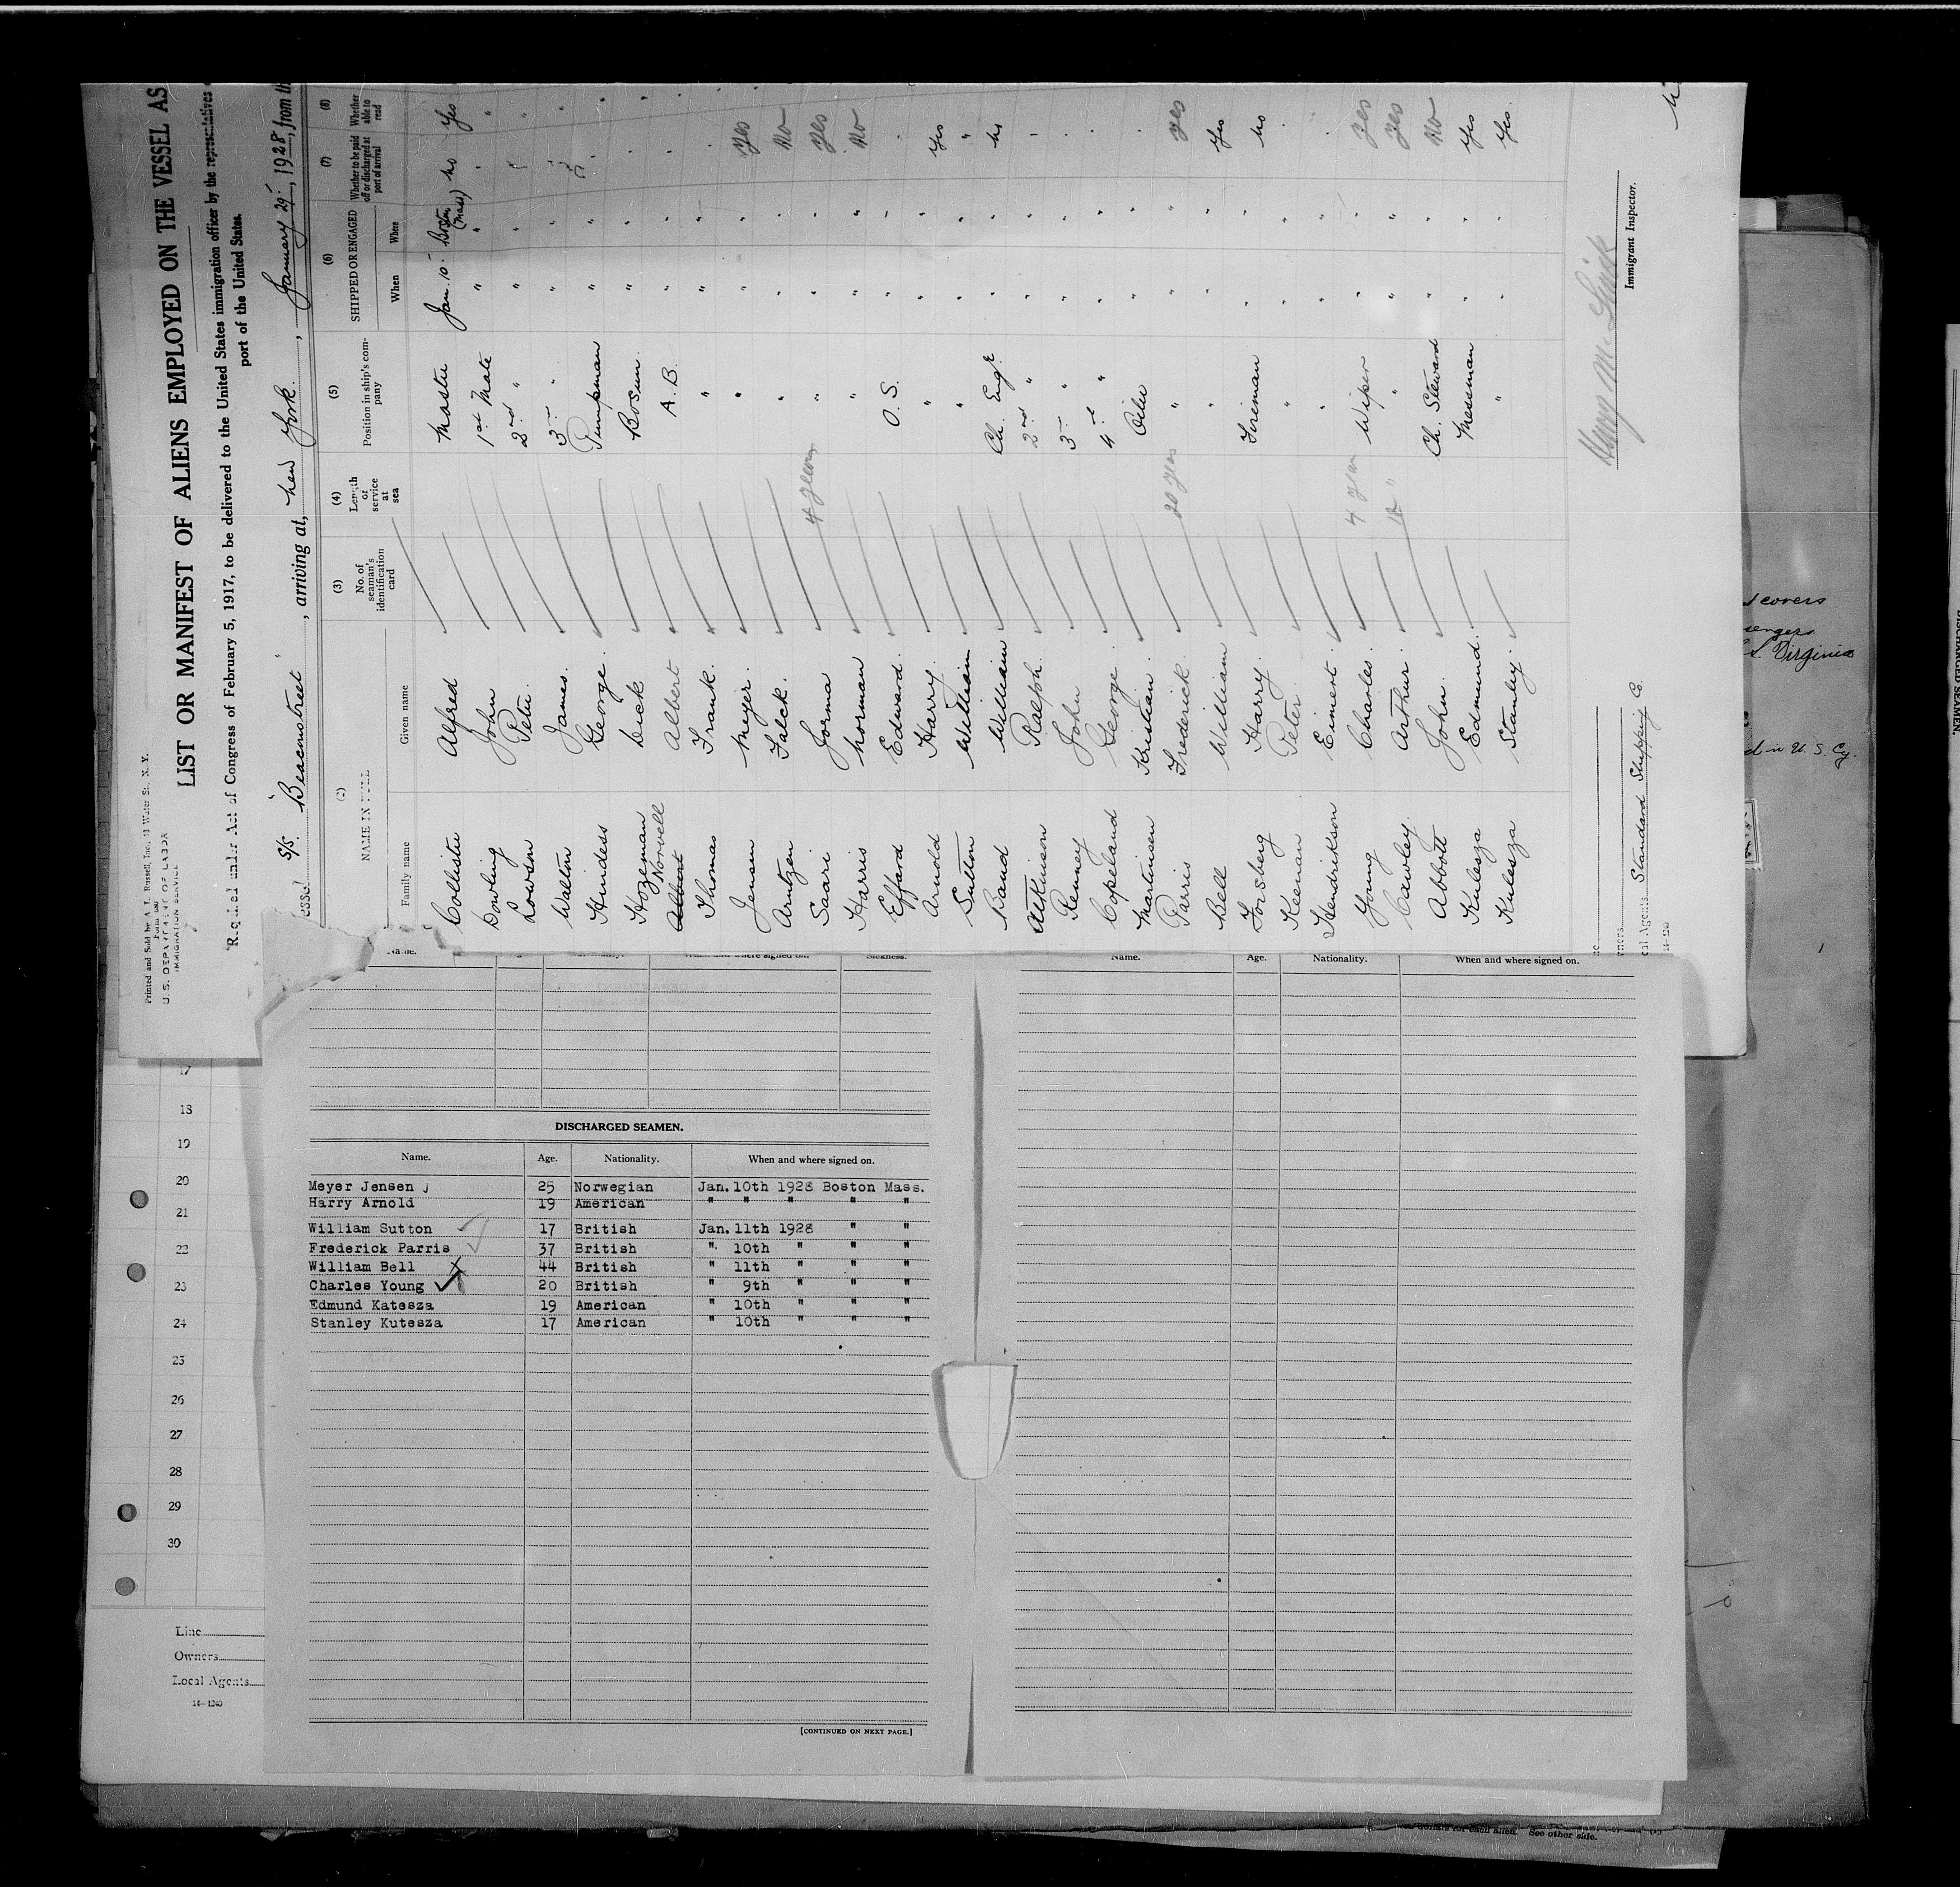 Printed and Sold by A. L. Russell, Inc., 13 Water St., N. Y.
U. S. DEPARTMENT OF LABOR
IMMIGRATION SERVICE
LIST OR MANIFEST OF ALIENS EMPLOYED ON THE VESSEL AS
Required under Act of Congress of February 5, 1917, to be delivered to the United States immigration officer by the representatives
port of the United States.
S/S. "Beaconstreet", arriving at, New York, January 29, 1928, from th
(2) (3) (4) (5) (6) (7) (8)
NAME IN FULL
No. of seaman's identification card
Length of service at sea
Position in ship's company
SHIPPED OR ENGAGED
Whether to be paid off or discharged at port of arrival
Whether able to read
Family name Given name When Where
Collister Alfred Master Jan. 10 Boston (Mass) No Yes
Dowling John 1st Mate " "
Lowson Peter 2nd " " "
Walton James 3 " " "
Hindess George Pumpman " "
Hozeman Dick Bosun " "
Norvell Albert A.B. " "
Thomas Frank " " "
Jensen Meyer " " " Yes
Arntzen Falck " " " No
Saari Jorma 4 years " " " Yes
Harris Norman " " " No
Effard Edward O.S. " "
Arnold Harry " " " Yes
Sutton William " " " "
Band William Ch. Engr " " No
Atkinson Ralph 2nd " " "
Renney John 3 " " "
Copeland George 4 " " "
Martinsen Kristian Oiler " "
Parris Frederick 20 years " " " Yes
Bell William " " " Yes
Forsberg Harry Fireman " " No
Keenan Peter " " "
Hendrikson Eimert " " "
Young Charles 4 years Wiper " " Yes
Cawley Arthur " " " Yes
Abbott John Ch. Steward " " No
Kulesza Edmund Messman " " Yes
Kulesza Stanley " " " Yes
Immigrant Inspector.
Local Agents Standard Shipping Co.
14-1240
Name. Age. Nationality. When and where signed on. Sickness.
DISCHARGED SEAMEN.
Name. Age. Nationality. When and where signed on.
Meyer Jensen 25 Norwegian Jan. 10th 1928 Boston Mass.
Harry Arnold 19 American " " " " "
William Sutton 17 British Jan. 11th 1928 " "
Frederick Parris 37 British " 10th " " "
William Bell 44 British " 11th " " "
Charles Young 20 British " 9th " " "
Edmund Katesza 19 American " 10th " " "
Stanley Kutesza 17 American " 10th " " "
[CONTINUED ON NEXT PAGE.]
Name. Age. Nationality. When and where signed on.
17
18
19
20
21
22
23
24
25
26
27
28
29
30
Line
Owners
Local Agents
14-1240
covers
Virginia
in U. S. Cy.
DISCHARGED SEAMEN.
dollars for each alien. See other side.